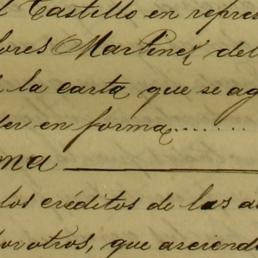 l Castillo en repres
lores Martinez del
l la carta que se ag
der en forma........
ma
los créditos de las a
por otros, que asciend